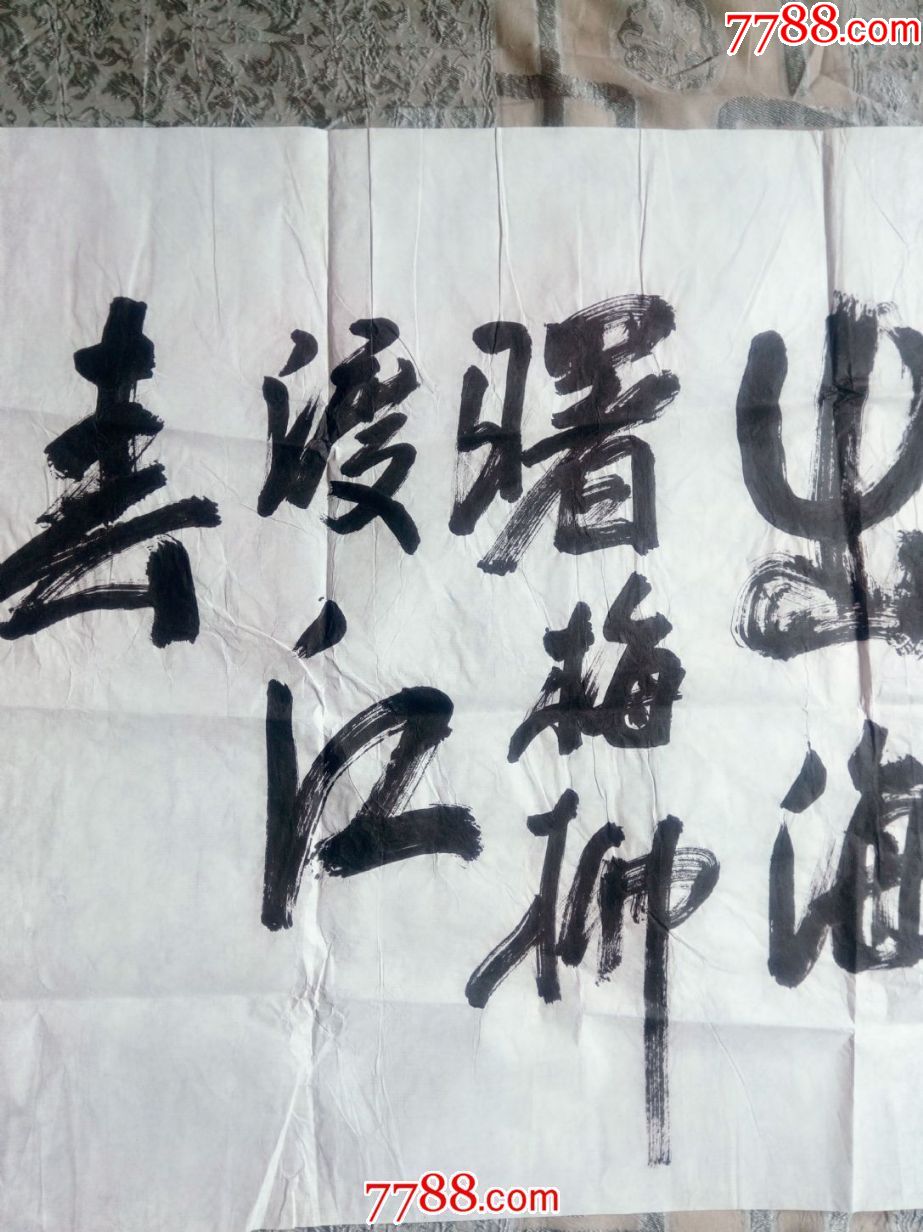 7788.com
出海
曙梅柳
渡江
春
7788.com